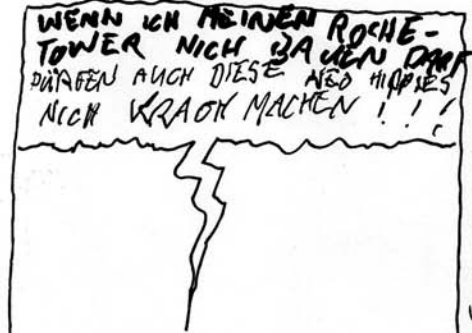 WENN ICH MEINEN ROCHE-
TOWER NICH BAUEN DARF
DÜRFEN AUCH DIESE NEO HIPPIES
NICH KRACH MACHEN !!!